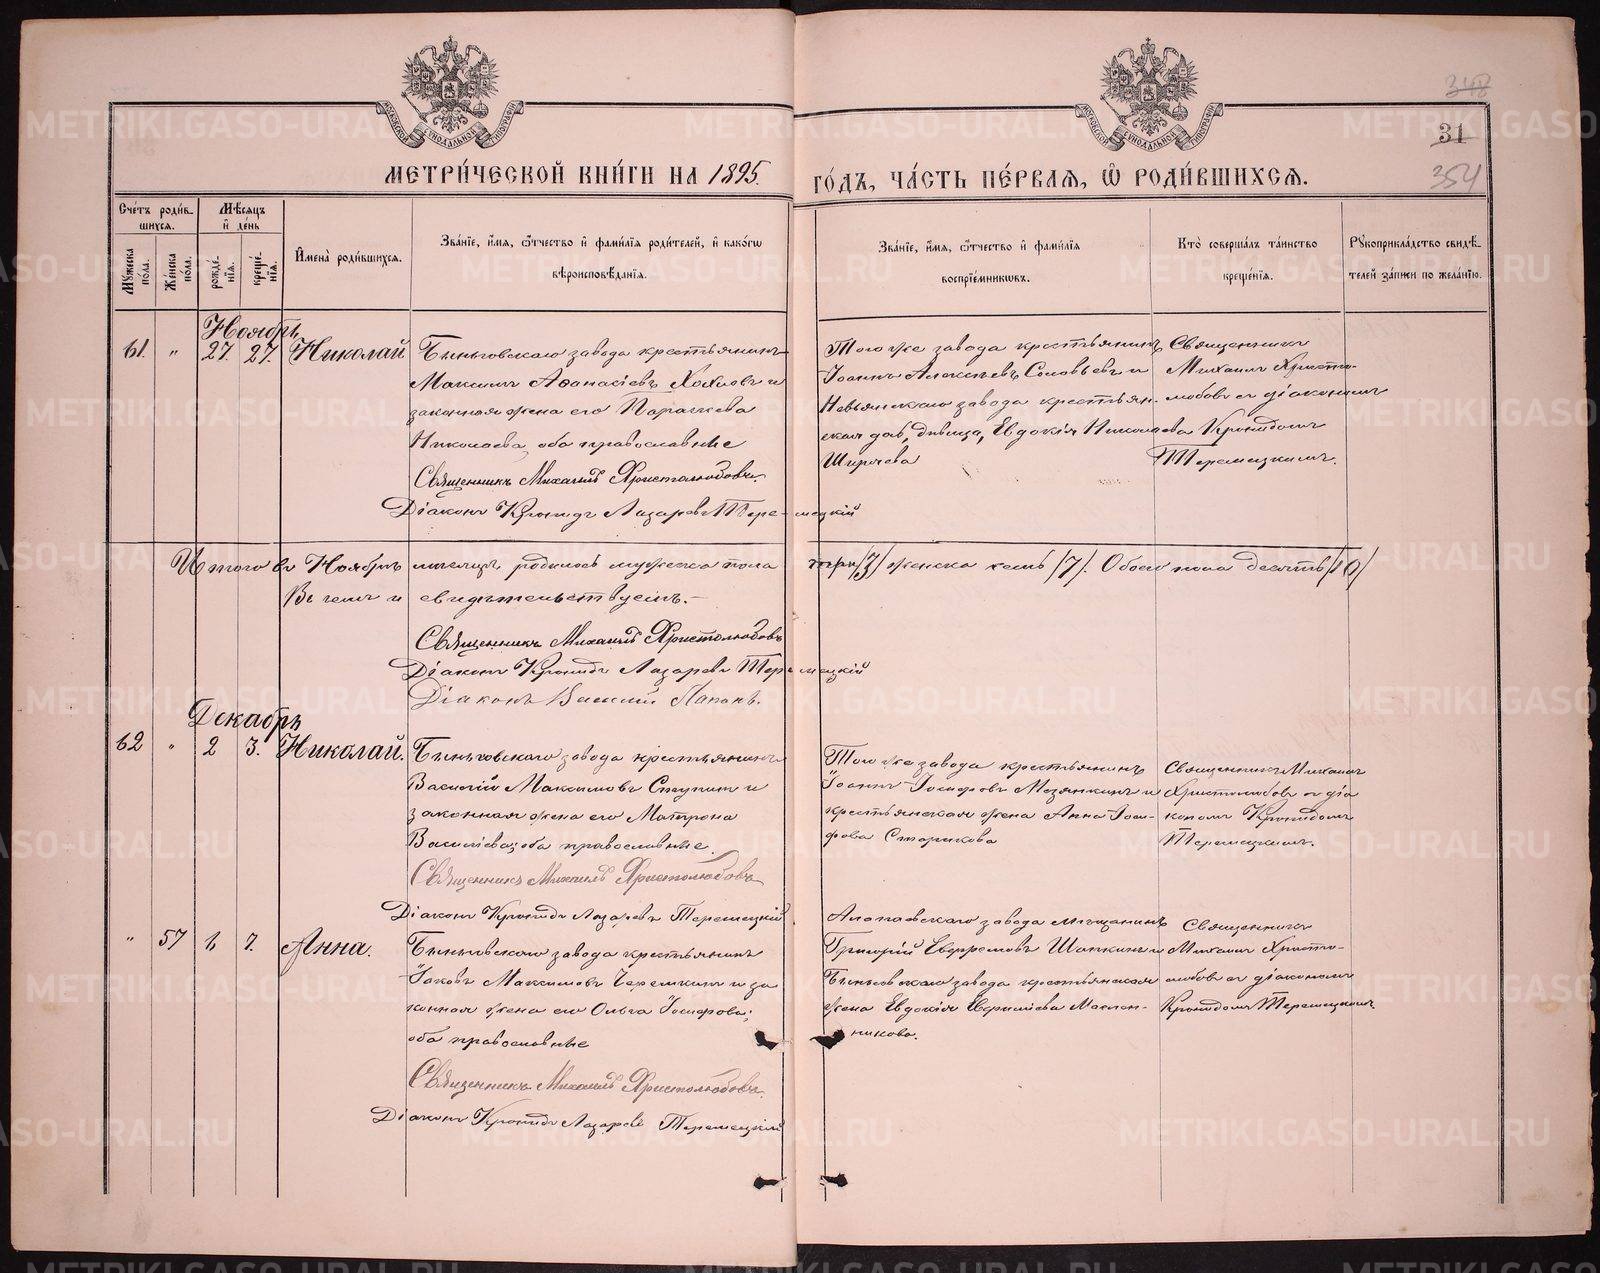 348
31
354
МЕТРИ́ЧЕСКОЙ КНИ́ГИ НА 1895.
ГО́ДЪ, ЧА́СТЬ ПЕ́РВАЯ, Ѽ РОДИ́ВШИХСЯ.
Сче́тъ роди́в-
шихся.
Мѣ́сяцъ
и҆ де́нь
Му́жеска пола.
Же́нска пола.
рожде́-
нїя.
креще́-
нїя.
И҆мена̀ роди́вшихся.
Зва́нїе, и҆́мя, ѻ҆́тчество и҆ фами́лїя роди́телей, и҆ како́гѡ
вѣроисповѣ́данїя.
Зва́нїе, и҆́мя, ѻ҆́тчество и҆ фами́лїя
воспрїе́мникѡвъ.
Кто̀ соверша́лъ та́инство
креще́нїя.
Рꙋкоприкла́дство свидѣ́-
телей за́писи по жела́нїю.
Ноябрь
61. " 27. 27. Николай
Быньговскаго завода крестьянинъ
Максимъ Аѳанасіевъ Хохловъ и
законная жена его Параскева
Николаева, оба православные
Священникъ Михаилъ Христолюбовъ
Діаконъ Кронидъ Лазаревъ Теремецкій
Того же завода крестьянинъ
Іоаннъ Алексѣевъ Соловьевъ и
Невьянскаго завода крестьян-
ская дѣвица, Евдокія Николаева
Священникъ
Михаилъ Христо-
любовъ съ діакономъ
Кронидомъ
Теремецкимъ.
Итого въ Ноябрѣ мѣсяцѣ родилось мужеска пола три /3/ женска семь /7/. Обоего пола десять /10/
Въ чемъ и свидѣтельствуемъ.-
Священникъ Михаилъ Христолюбовъ
Діаконъ Кронидъ Лазаревъ Теремецкій
Діаконъ Василій
Декабрь
62 " 2 3. Николай.
Быньговскаго завода крестьянинъ
Василій Максимовъ Ступинъ и
законная жена его Матрона
Васильева, оба православные.
Священникъ Михаилъ Христолюбовъ
Діаконъ Кронидъ Лазаревъ Теремецкій
Того же завода крестьянинъ
Іоаннъ Іосифовъ Мезянкинъ и
крестьянская жена Анна Іоси-
фова Старикова
Священникъ Михаилъ
Христолюбовъ съ діа
кономъ Кронидомъ
Теремецкимъ.
" 57 1, 7. Анна.
Быньговскаго завода крестьянинъ
Іаковъ Максимовъ Черемкинъ и за
конная жена его Ольга Іосифова,
оба православные
Священникъ Михаилъ Христолюбовъ.
Діаконъ Кронидъ Лазаревъ Теремецкій
Алапаевскаго завода мѣщанинъ
Григорій Евфремовъ Шапкинъ и
Быньговскаго завода крестьянская
жена Евдокія Маслен-
никова.
Священникъ
Михаилъ Христо-
любовъ съ діакономъ
Кронидомъ Теремецкимъ
METRIKI.GASO-URAL.RU